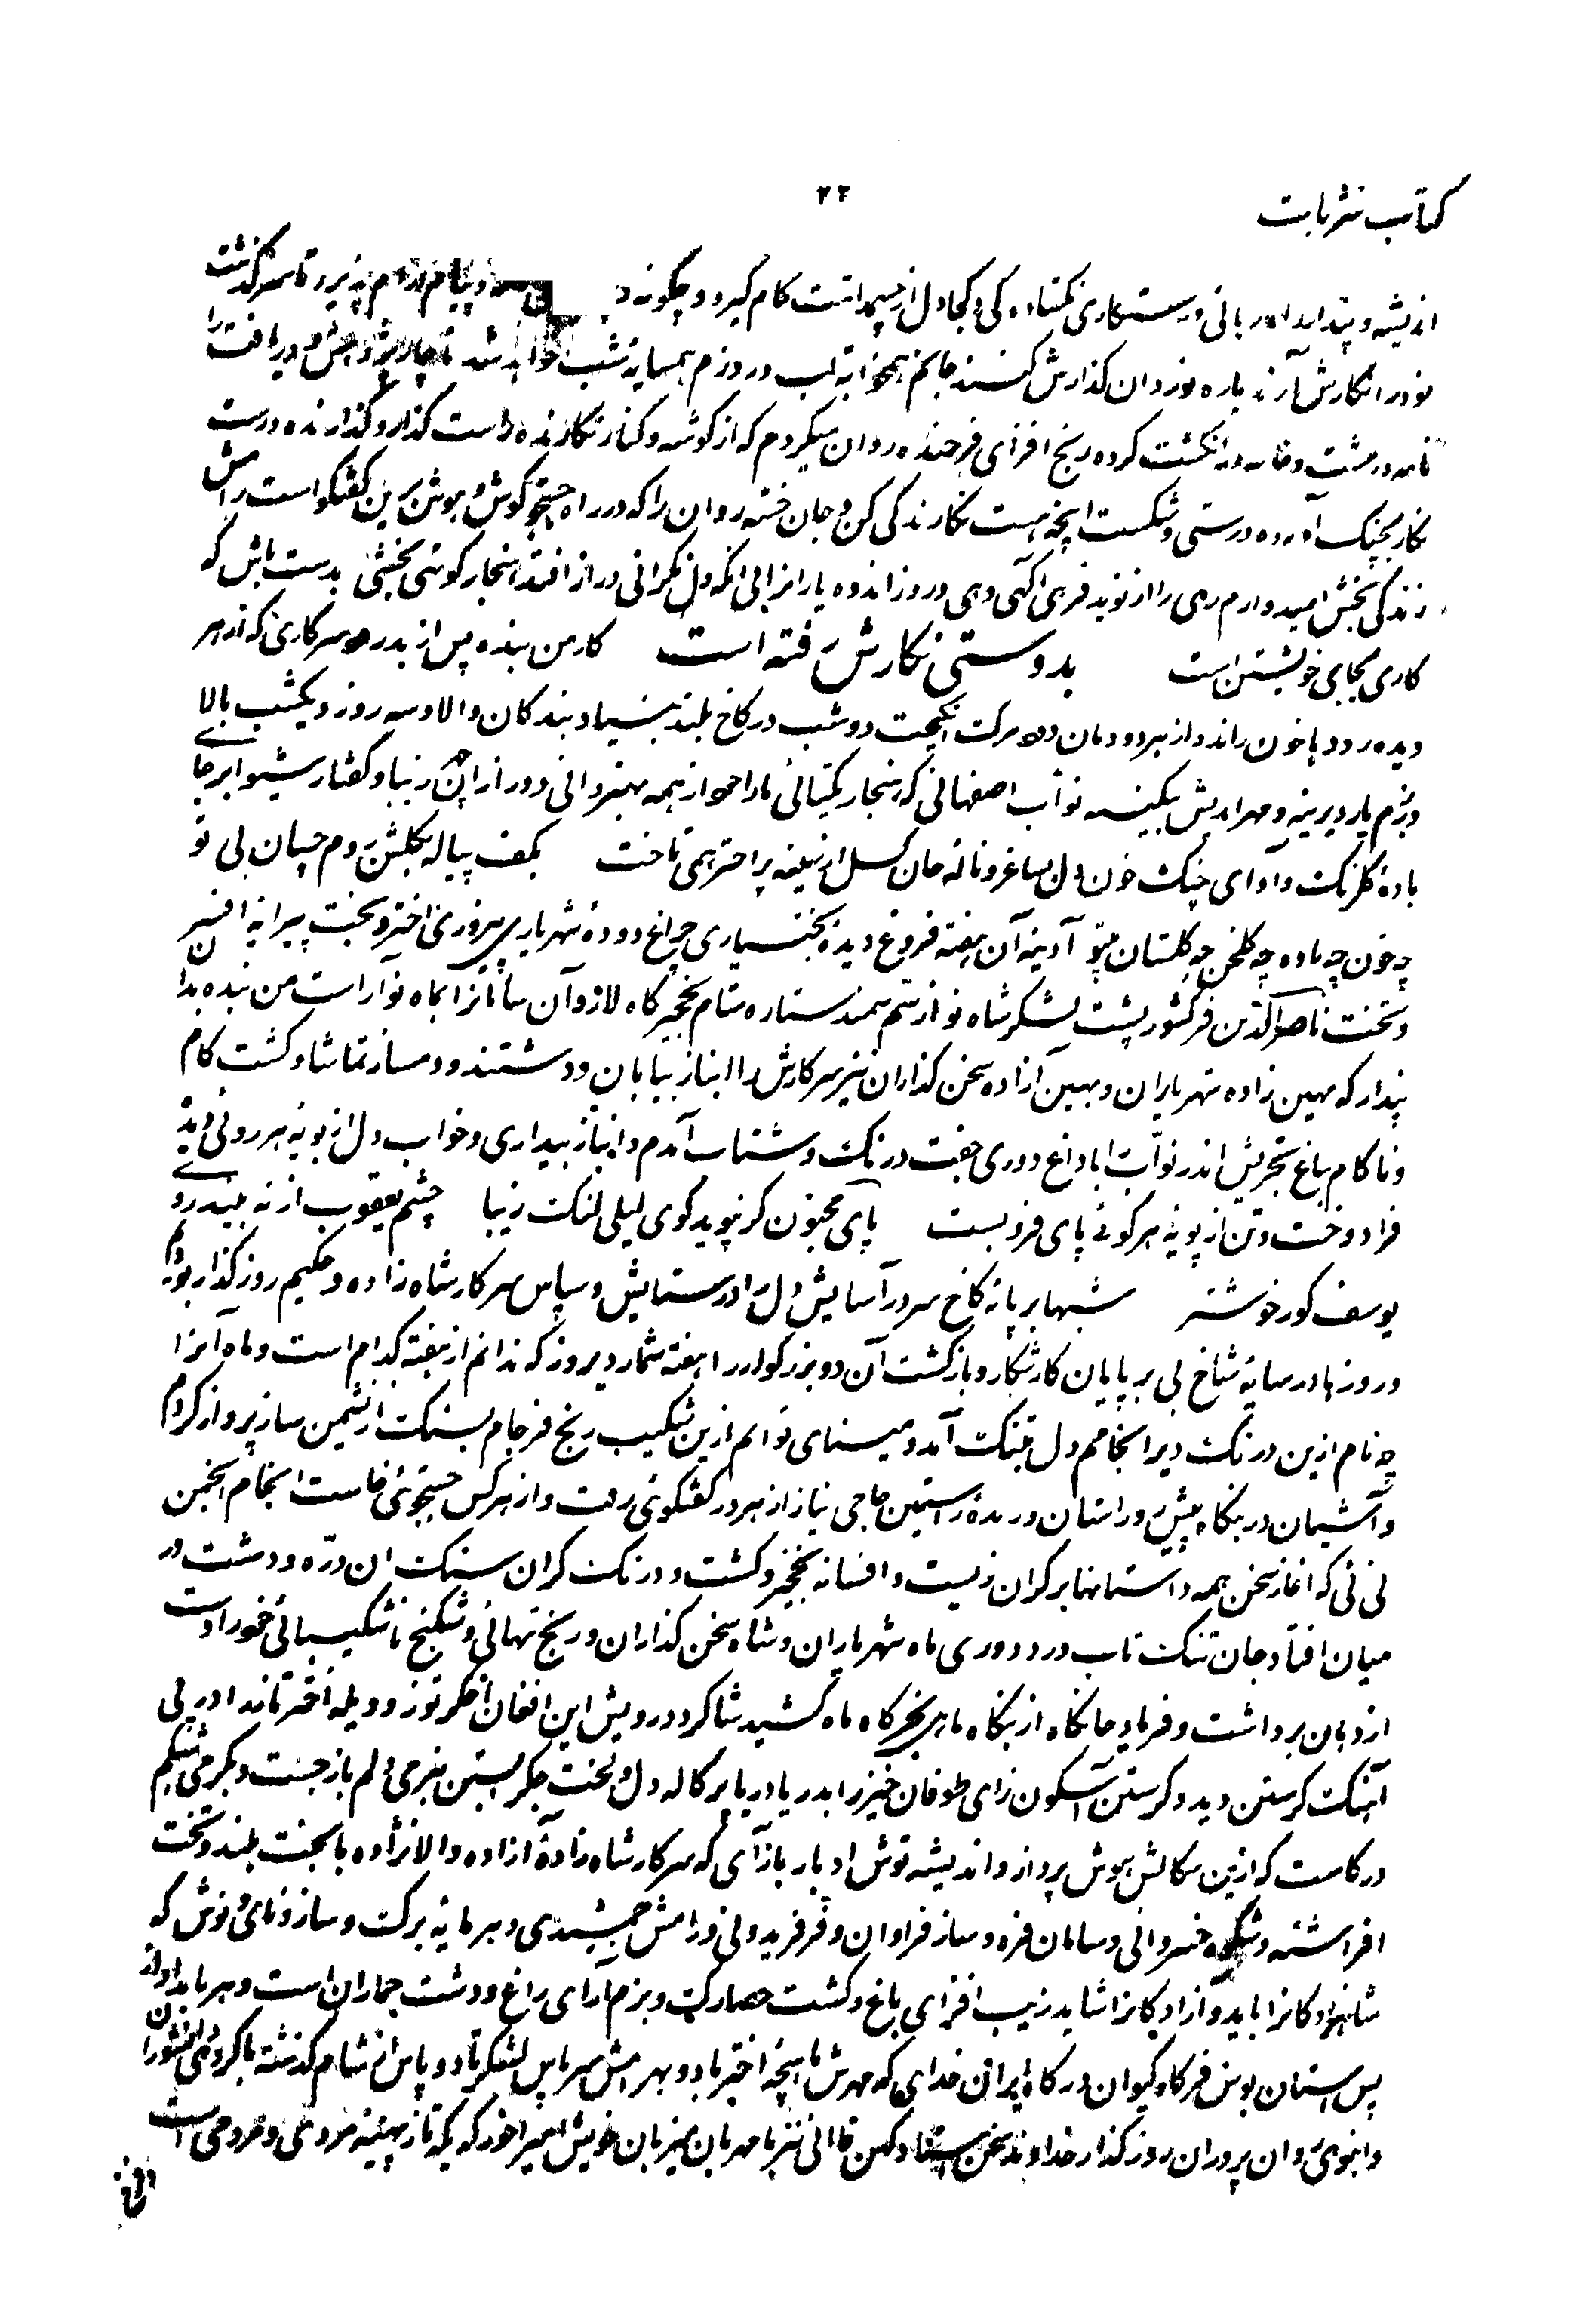 کتاب نثر بابت
۲۲
اندیشه و پندار کی و کجا دل از کام گیرد و چگونه پیام پذیرد تا سرگذشت
نگارش آرند باره نوردان گذارش کنند شب در روزم همسایه شب خواهد شد ناچار پژوهش و دریافت را
نامه در مشت و خامه در انگشت کرده رنج افزای فرخنده روان میگردم که از گوشه و کنار نگارنده راست گذار و گذارنده درست
نگار بچنگ آورده درستی و شکست هست نگارندگی کن و جان خسته روان را که در راه جستجو گوش و هوش برین گفتگو است رامش
زندگی بخش امیدوارم رهی را از نوید فرهی آگهی دهی و روز اندوه یارانرا دل نگرانی دراز افتد هنجار کوتهی بخشی بدست باش که
کاری بجای خویشتن است بدوستی نگارش رفته است کار من بنده پس از بدرود سرکاری که از هر
دیده رودها خون راند و از هر دودمان دود مرگ انگیخت دو شب در کاخ بلند بنیاد بندگان والا و سه روز و یکشب بالا
و بزم یار دیرینه و مهراندیش بیکینه نواب اصفهانی که هنجار یکتائی ما را خود از همه بهتر دانی دور از آن زیبا و گفتار شیوا بر جا
باده گلرنگ و آوای چنگ خون دل بساغر و ناله جان گسل از سینه پر اخگر همی تاخت بکف پیاله بگلشن روم چسان بی تو
چه خون چه باده چه گلخن چه گلستان بیتو آدینه آن هفته فروغ دیده بختیاری چراغ دوده شهریاری پیروزی اختر و بخت پیرایه افسر
و تخت ناصرالدین فر کشور پشت لشکر شاه نو از سم سمند ستاره ستام نخجیرگاه لار و آن سامانرا بماه نو آراست من بنده بدان
پندار که مهین زاده شهریاران و بهین آزاده سخن گذاران نیز سرکارش را انباز بیابان و دشتند و دمساز تماشا و گشت کام
و ناکام بباغ تجریش اندر نواب را با داغ دوری جفت درنگ و شتاب آمدم و انباز بیداری و خواب دل از بویه هر روئی دیده
فرا دوخت و تن از پویه هر کوئی پای فرو بست پای مجنون گر نپوید کوی لیلی لنگ زیبا چشم یعقوب ار نه بیند روی
یوسف کور خوشتر شبها بر پایه کاخ سرود آسایش دل را در ستایش و سپاس سرکار شاهزاده و حکیم روزگذار بودم
و روزها در سایه شاخ بی بر پایان کار شکار و بازگشت آن دو بزرگوار را هفته شمار دیروز که ندانم از هفته کدام است و ماه آنرا
چه نام ازین درنگ دیر انجامم دل بتنگ آمد و مینای توانم ازین شکیب رنج فرجام بسنگ از نشیمن ساز پرواز کردم
و آشیان در بنگاه پیر و راستان دریده آستین حاجی نیاز از هر در گفتگوئی رفت و از هر کس جستجوئی خاست انجام انجمن
نی نی که آغاز سخن همه داستانها بر کران زیست و افسانه نخجیر و گشت و درنگ گران سنگ آن دره و دشت در
میان افتاد جان تنگ تاب درد دوری ماه شهریاران و شاه سخن گذاران و رنج تنهائی و شکنج ناشکیبائی خود راست
از دهان برداشت و فریاد جانکاه از بنگاه ماهی بر خرگاه ماه کشید شاگرد درویش این افغان اخگر توز و ویله اختر تاز را در پی
آهنگ گرستن دید و گرستن آبسکون زای طوفان خیز را بدریا دریا پرگاله دل و لخت جگر آبستن بنرمی دلم باز جست و بگرمی شکیم
در کاست که ازین سگالش هوش پرداز و اندیشه توش اوبار بازآی که سرکار شاهزاده آزاده والا نژاده با بخت بلند و تخت
افراشته و شکوه خسروانی و سامان فره و ساز فراوان و فر فریدونی و رامش جمشیدی و هر مایه برگ و ساز و نای و نوش که
شاهزادگانرا باید و آزادگانرا شاید زیب افزای باغ و گشت حصارک و بزم آرای راغ و دشت جماران است و هر بامداد از
پس آستان بوس فرگاه کیوان درگاه ایران خدای که مهرش ماهیچه اختر باد و بهرامش سرهای لشکر باد و پاس از شام گذشته با گروهی دانشوران
و انبوهی روان پروران روزگذار خداوند سخن استاد کهن قاآنی نیز با مهربان میزبان خویش